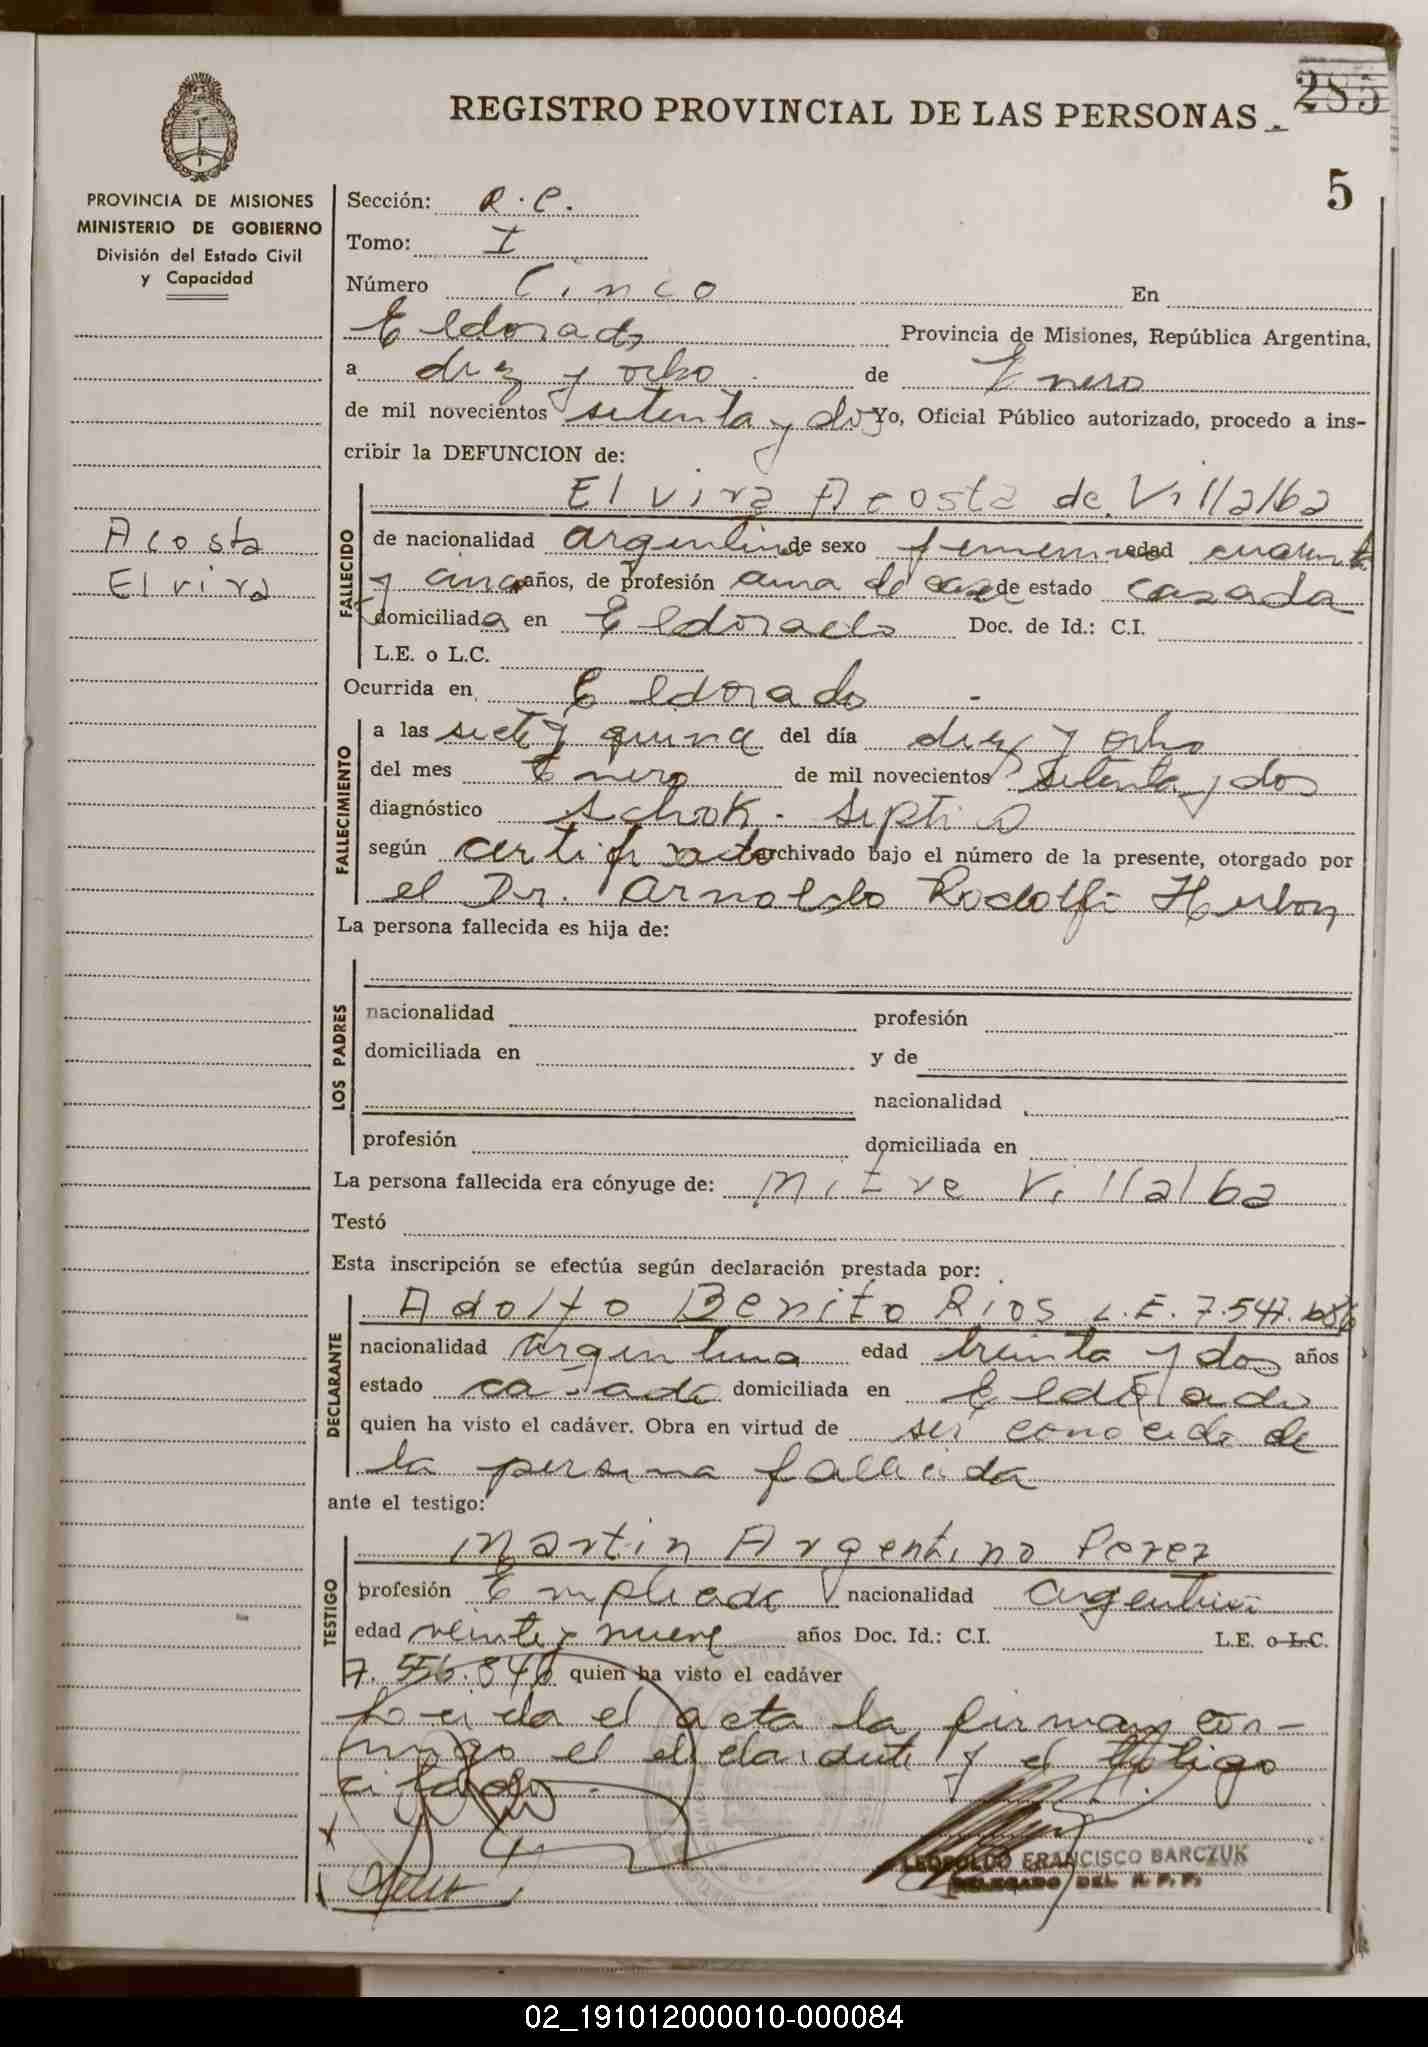 285
REGISTRO PROVINCIAL DE LAS PERSONAS
5
PROVINCIA DE MISIONES
MINISTERIO DE GOBIERNO
División del Estado Civil
y Capacidad
Acosta
Elvira
Sección: R.C.
Tomo: I
Número Cinco En
Eldorado Provincia de Misiones, República Argentina,
a diez y ocho de Enero
de mil novecientos setenta y dos Yo, Oficial Público autorizado, procedo a ins-
cribir la DEFUNCION de:
FALLECIDO
Elvira Acosta de Villalba
de nacionalidad argentina de sexo femenino edad cuarenta
y cinco años, de profesión ama de casa de estado casada
domiciliada en Eldorado Doc. de Id.: C.I.
L.E. o L.C.
Ocurrida en Eldorado -
FALLECIMIENTO
a las siete y quince del día diez y ocho
del mes Enero de mil novecientos setenta y dos
diagnóstico Schok - septico
según certificado archivado bajo el número de la presente, otorgado por
el Dr. Arnoldo Rodolfo
La persona fallecida es hija de:
LOS PADRES
nacionalidad profesión
domiciliada en y de
nacionalidad
profesión domiciliada en
La persona fallecida era cónyuge de: Mitre Villalba
Testó
Esta inscripción se efectúa según declaración prestada por:
DECLARANTE
Adolfo Benito Rios L.E. 7.547.
nacionalidad argentina edad treinta y dos años
estado casado domiciliada en Eldorado
quien ha visto el cadáver. Obra en virtud de ser conocido de
la persona fallecida
ante el testigo:
TESTIGO
Martin Argentino Perez
profesión Empleado nacionalidad argentina
edad veinte y nueve años Doc. Id.: C.I. L.E. o L.C.
7.556.846 quien ha visto el cadáver
Leida el acta la firman con-
migo el declarante y el testigo
citado.
LEOPOLDO FRANCISCO BARCZUK
DELEGADO DEL R. P. P.
02_191012000010-000084